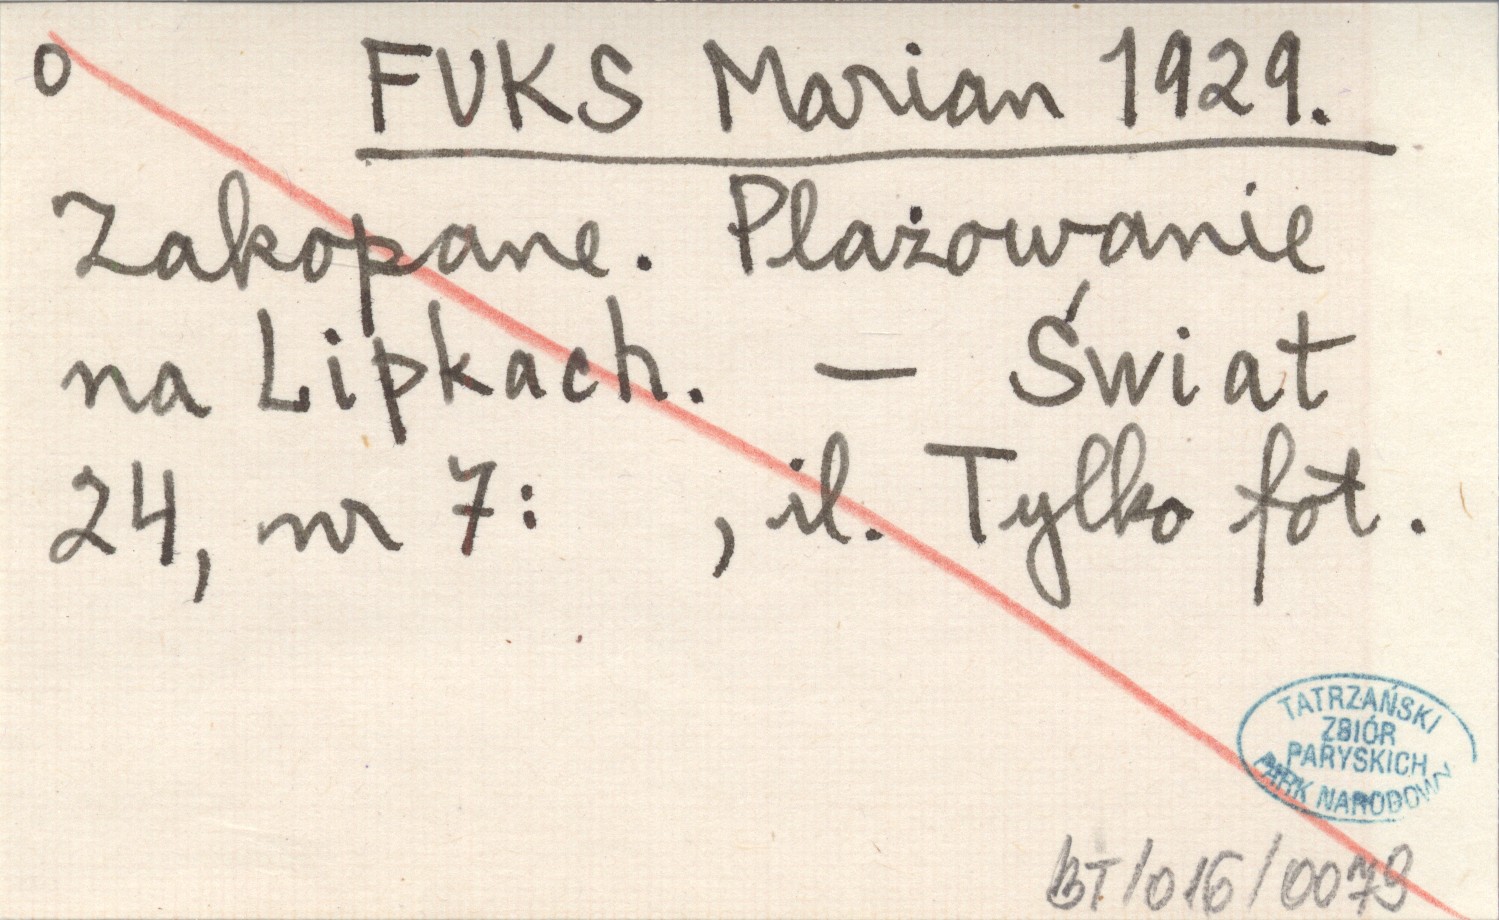 o FUKS Marian 1929.
Zakopane. Plażowanie
na Lipkach. — Świat
24, nr 7: , il. Tylko fot.
TATRZAŃSKI
ZBIÓR
PARYSKICH
PARK NARODOWY
BT/016/0079